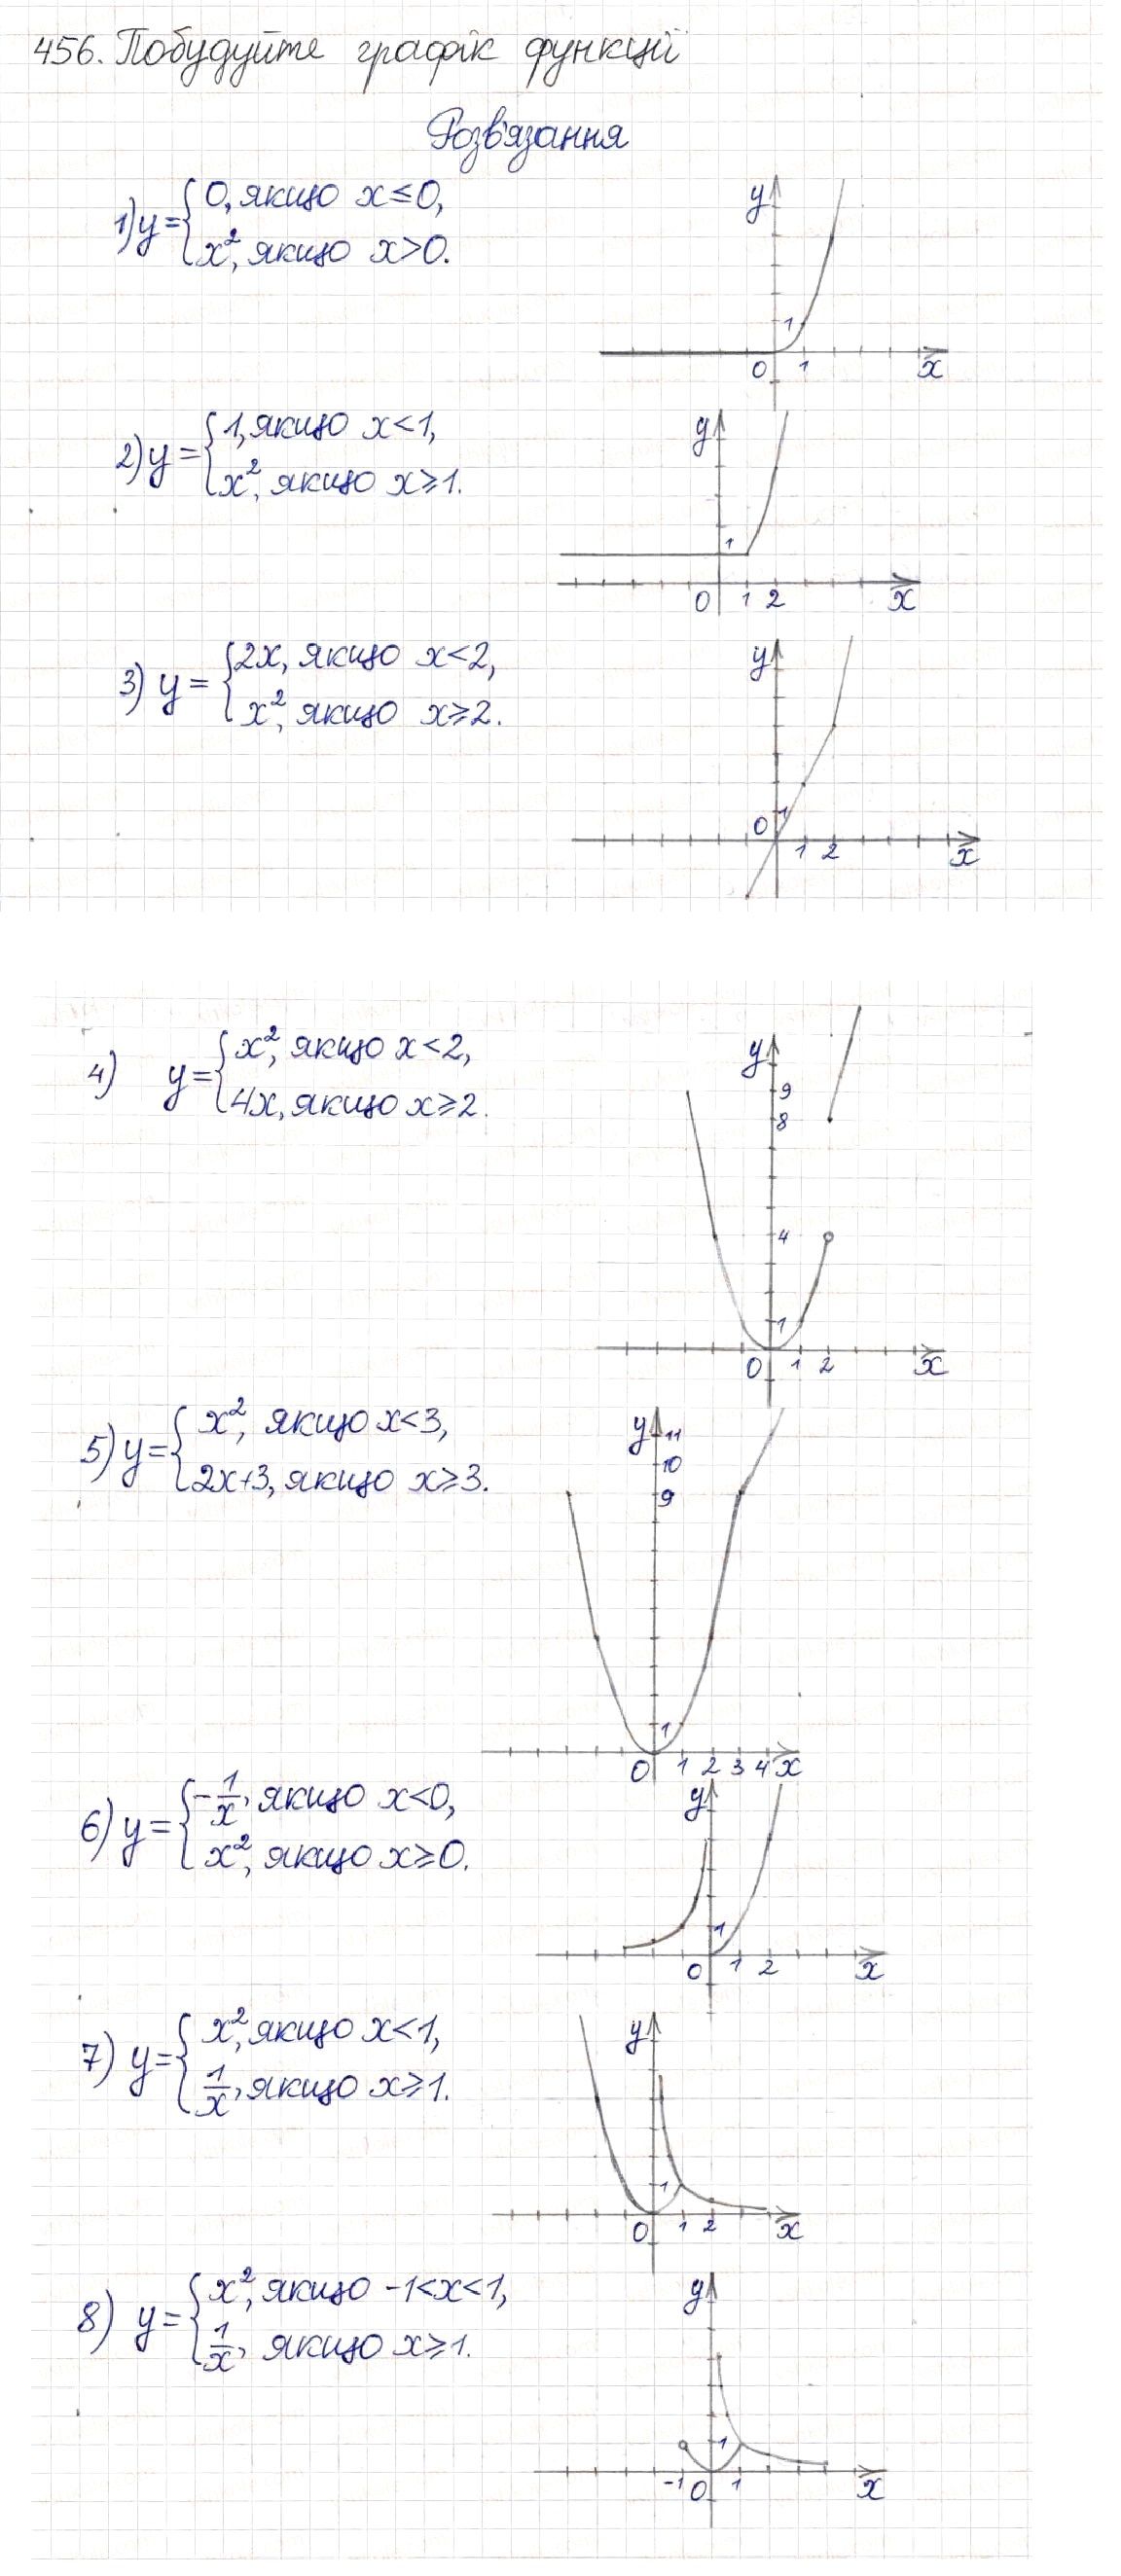 456. Побудуйте графік функції
Розв'язання
1) y = { 0, якщо x ≤ 0,
x², якщо x > 0.
y
1
0 1 x
2) y = { 1, якщо x < 1,
x², якщо x ≥ 1.
y
1
0 1 2 x
3) y = { 2x, якщо x < 2,
x², якщо x ≥ 2.
y
1
0
1 2 x
4) y = { x², якщо x < 2,
4x, якщо x ≥ 2.
y
9
8
4
1
0 1 2 x
5) y = { x², якщо x < 3,
2x+3, якщо x ≥ 3.
y
11
10
9
1
0 1 2 3 4 x
6) y = { -1/x, якщо x < 0,
x², якщо x ≥ 0.
y
1
0 1 2 x
7) y = { x², якщо x < 1,
1/x, якщо x ≥ 1.
y
1
0 1 2 x
8) y = { x², якщо -1 < x < 1,
1/x, якщо x ≥ 1.
y
1
-1 0 1 x